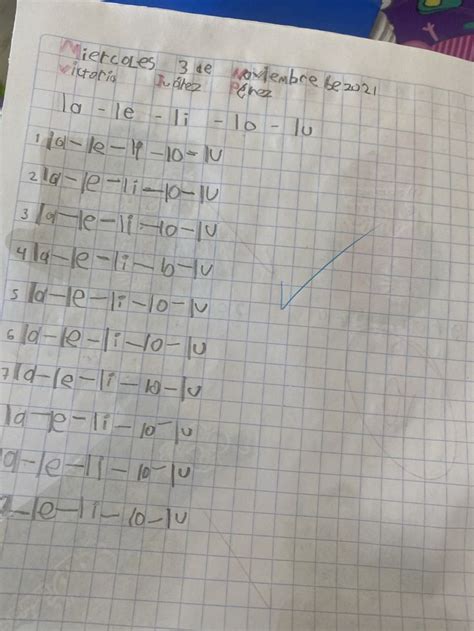 Miercoles 3 de Noviembre de 2021
Victoria Juárez Pérez
la - le - li - lo - lu
1 la - le - li - lo - lu
2 la - le - li - lo - lu
3 la - le - li - lo - lu
4 la - le - li - lo - lu
5 la - le - li - lo - lu
6 la - le - li - lo - lu
7 la - le - li - lo - lu
la - le - li - lo - lu
a - le - li - lo - lu
- le - li - lo - lu